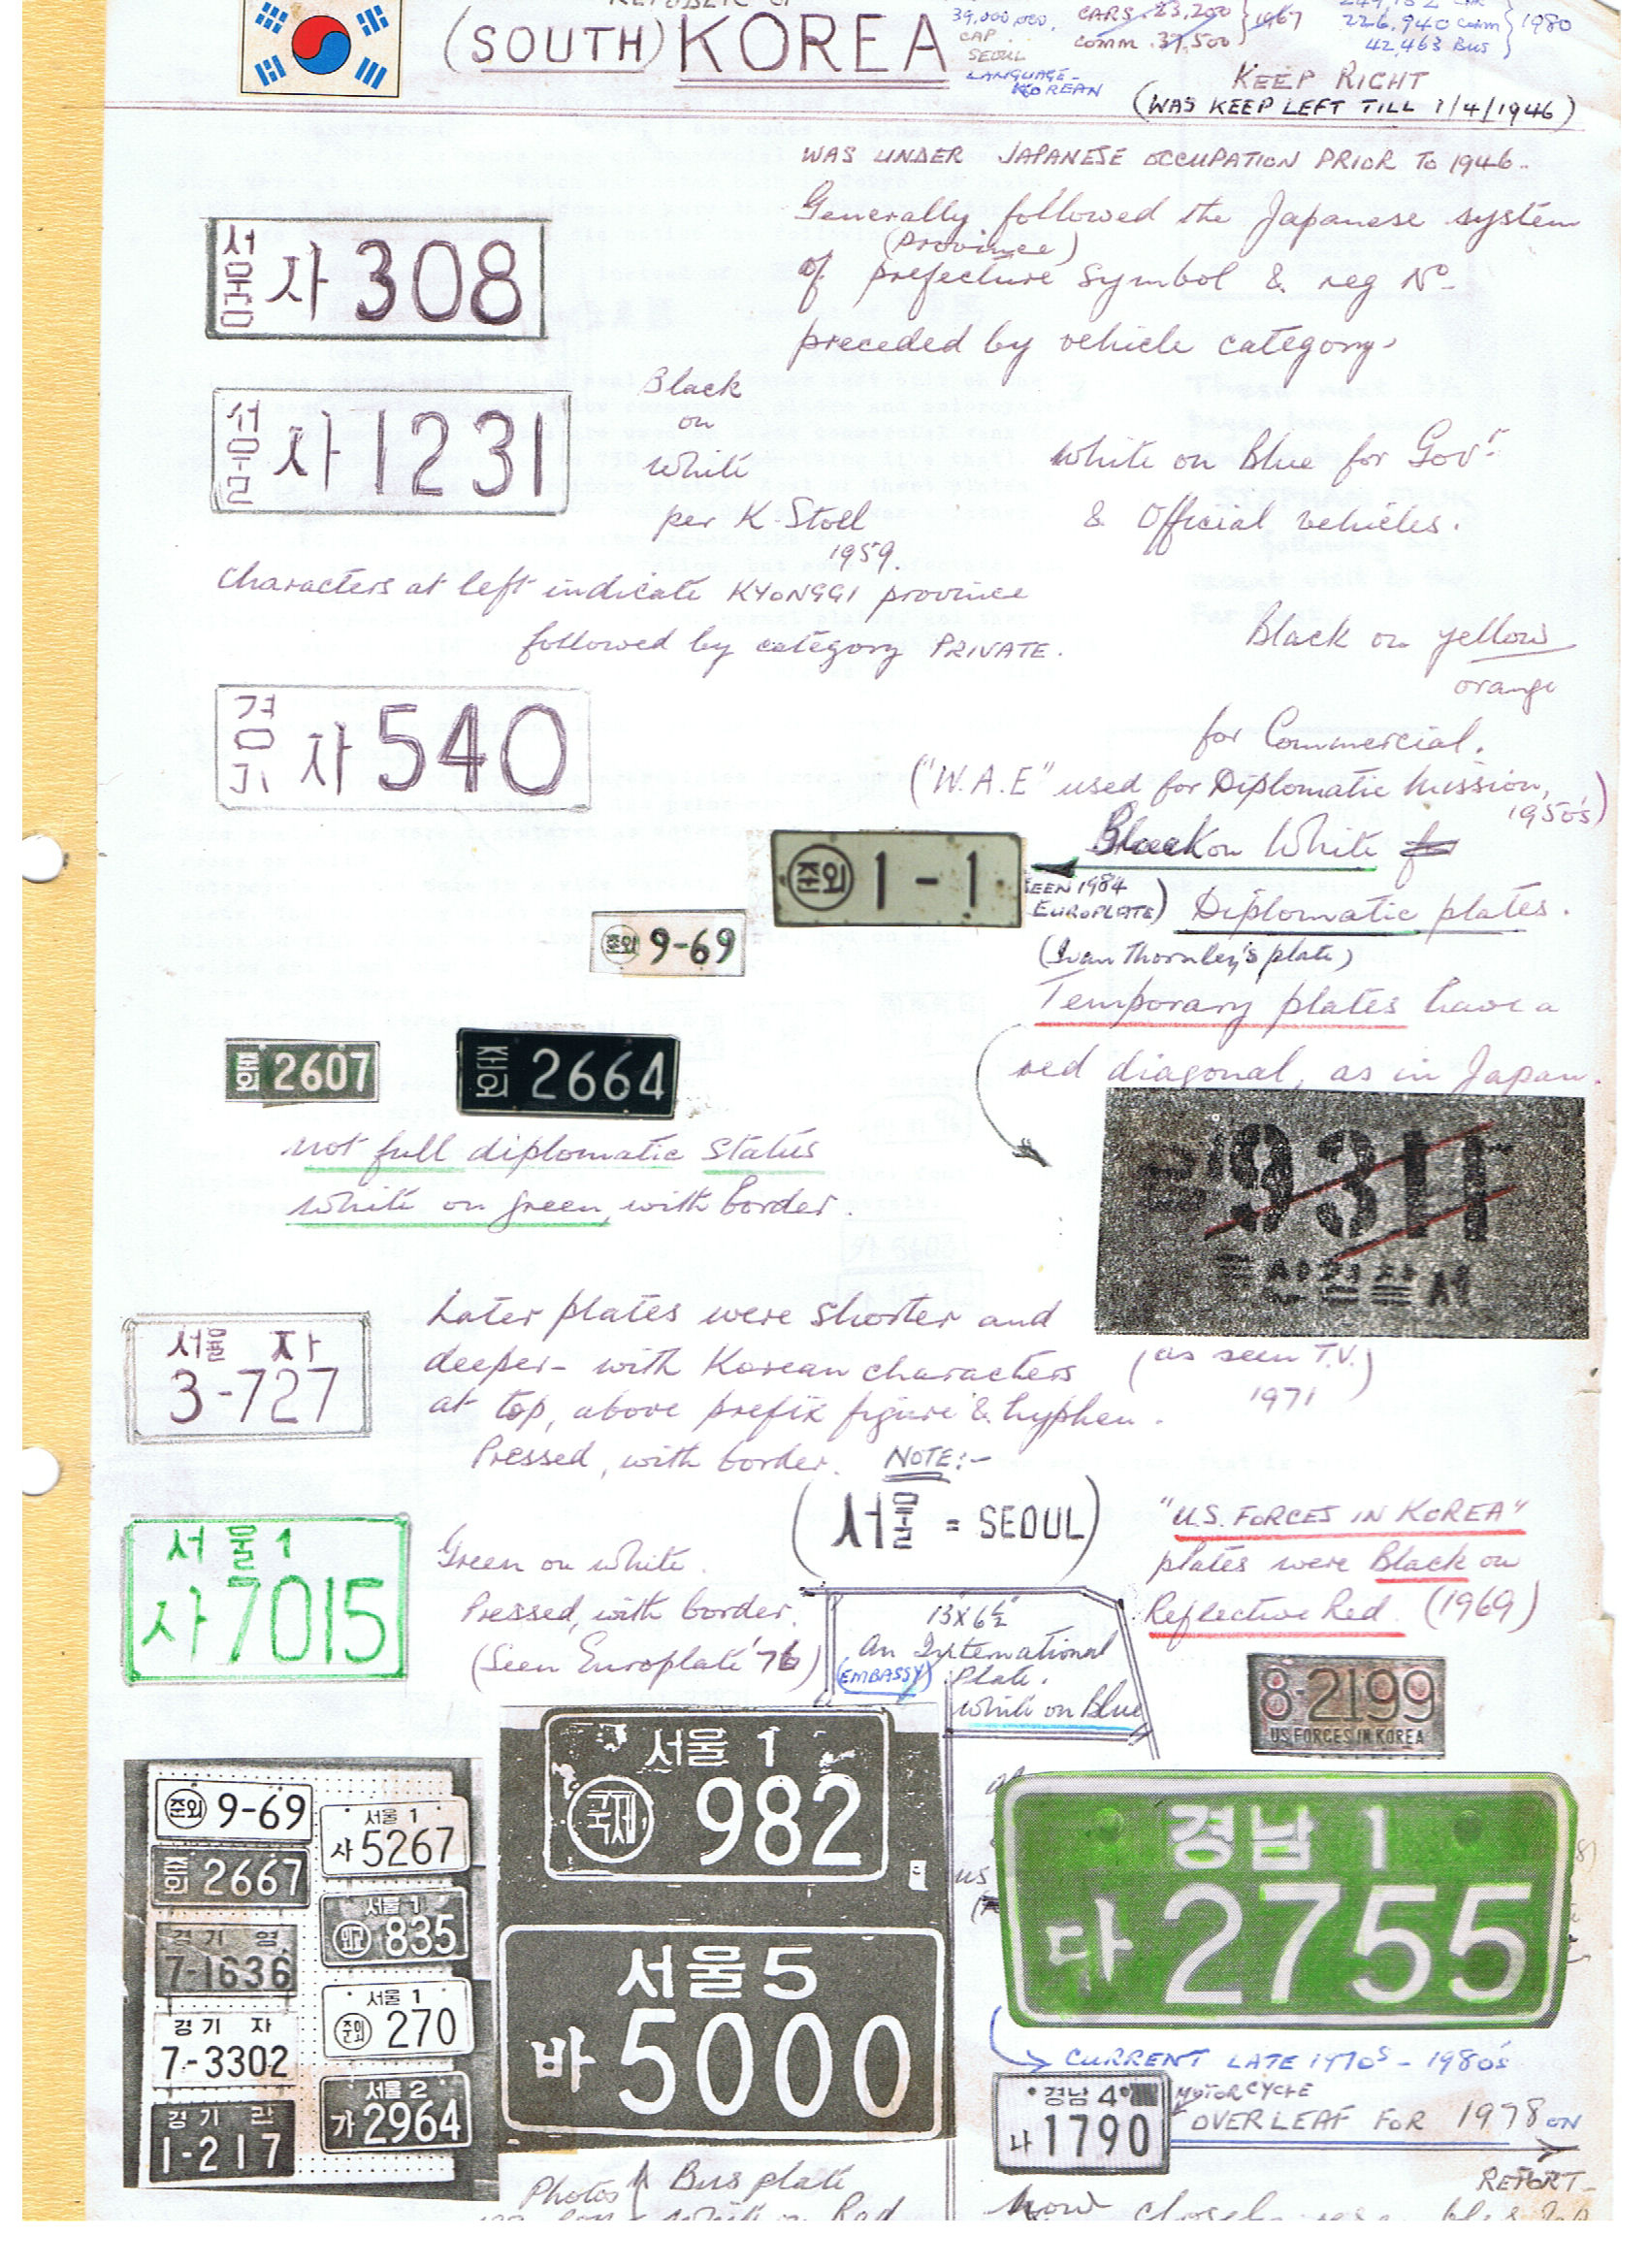 (SOUTH) KOREA
39,000,000.
CAP.
SEOUL
LANGUAGE-
KOREAN
CARS. 23,200
COMM. 37,500
1967
226,940 Comm
42,463 Bus
1980
KEEP RIGHT
(WAS KEEP LEFT TILL 1/4/1946)
WAS UNDER JAPANESE OCCUPATION PRIOR TO 1946.
Generally followed the Japanese system
(province)
of prefecture symbol & reg No
preceded by vehicle category.
사 308
서울
사 1231
Black
on
White
per K. Stoll
1959.
White on Blue for Govt
& Official vehicles.
Characters at left indicate KYONGGI province
followed by category PRIVATE.
Black on yellow
orange
for Commercial.
경기
자 540
("W.A.E" used for Diplomatic Mission,
1950's)
준외 1-1
Black on White
SEEN 1984
EUROPLATE)
Diplomatic plates.
(Ivan Thornley's plate)
준외 9-69
Temporary plates have a
red diagonal, as in Japan.
준외 2607
2664
not full diplomatic status
White on green, with border.
9311
(as seen T.V.)
1971
서울 자
3-727
Later plates were shorter and
deeper - with Korean characters
at top, above prefix figure & hyphen.
Pressed, with border.
NOTE:-
(서울 = SEOUL)
서울 1
사 7015
Green on white.
Pressed, with border.
(Seen Europlate '76)
13 x 6½"
An International
(EMBASSY) Plate.
White on Blue
"U.S. FORCES IN KOREA"
plates were Black on
Reflective Red. (1969)
8-2199
US FORCES IN KOREA
준외 9-69
준외 2667
경기 영
7-1636
경기 자
7-3302
경기 관
1-217
서울 1
사 5267
서울 1
외교 835
서울 1
준외 270
서울 2
가 2964
서울 1
국제 982
서울 5
바 5000
경남 1
다 2755
CURRENT LATE 1970s - 1980's
경남 4
나 1790
MOTORCYCLE
OVERLEAF FOR 1978 ON
REPORT-
Photos
Bus plate
White on Red
now closely